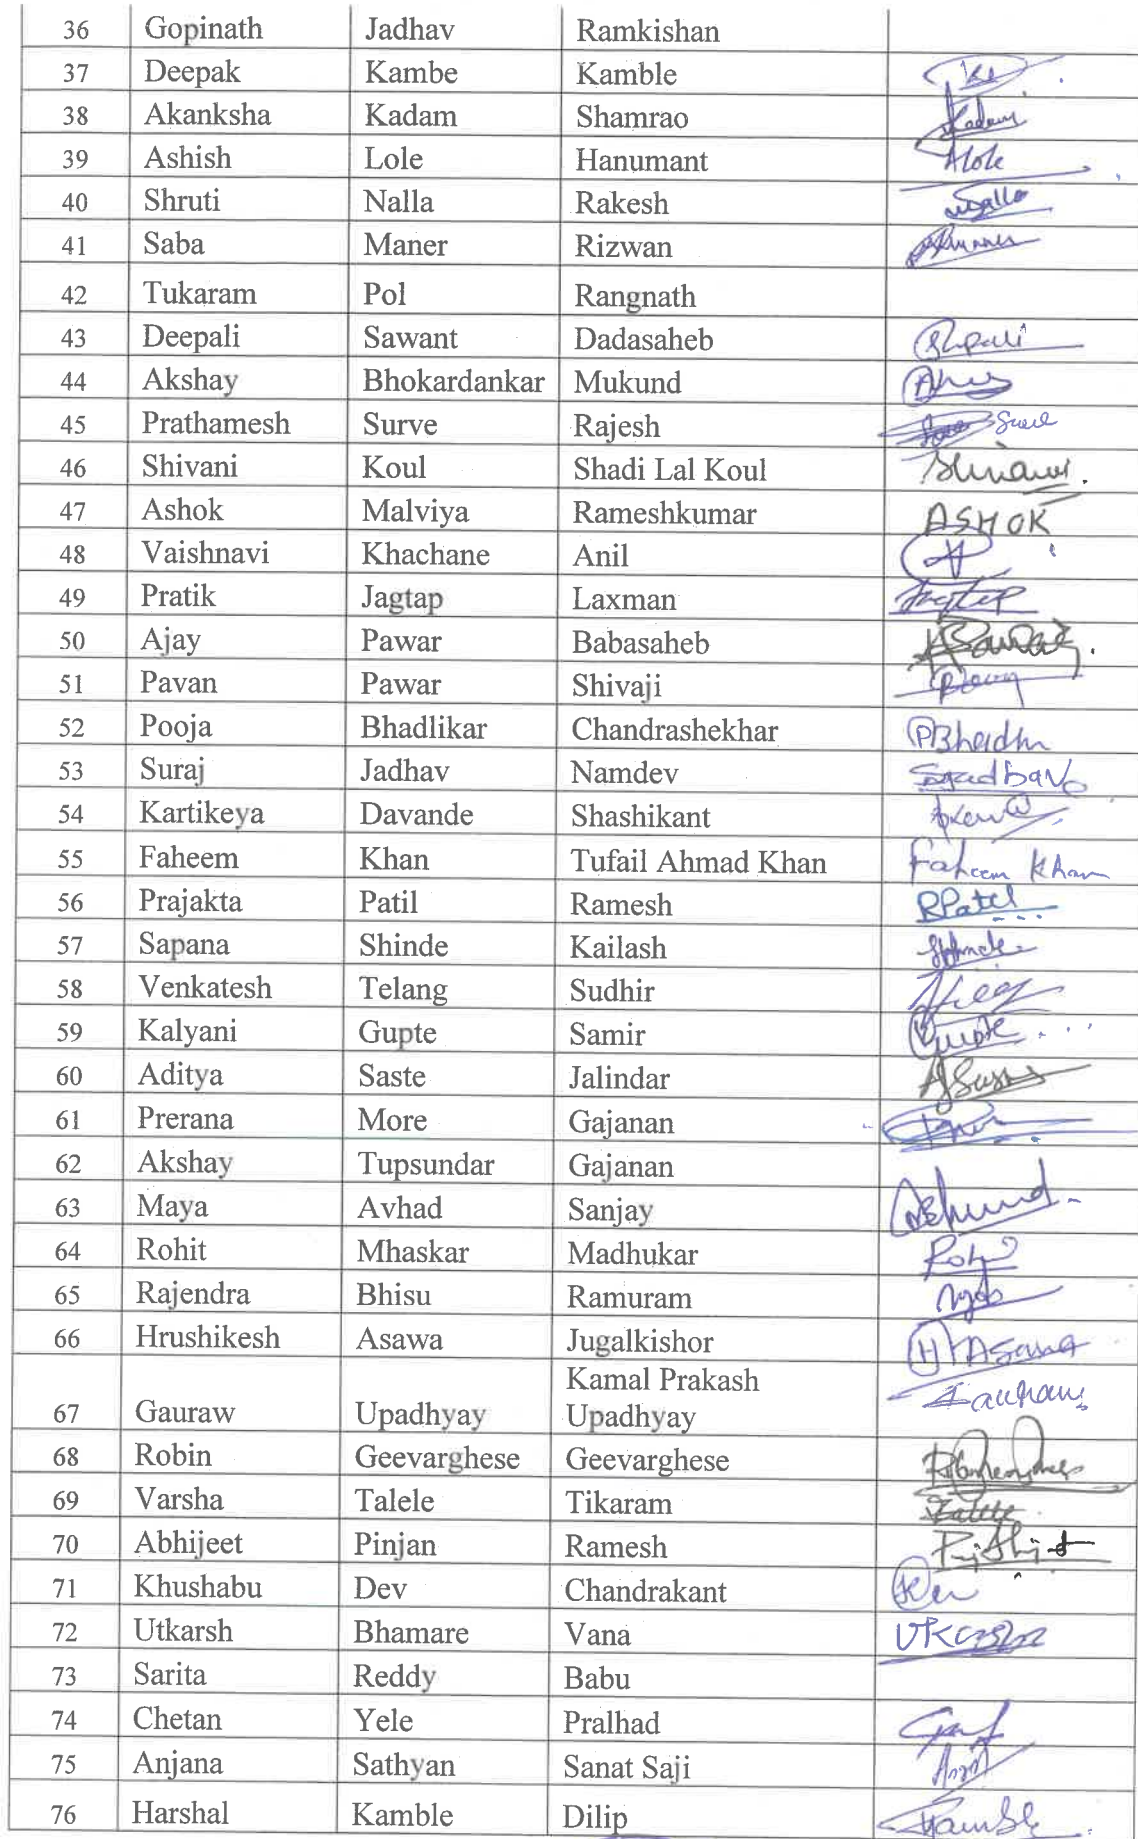 36 Gopinath Jadhav Ramkishan
37 Deepak Kambe Kamble
38 Akanksha Kadam Shamrao Kadam
39 Ashish Lole Hanumant Alole
40 Shruti Nalla Rakesh
41 Saba Maner Rizwan
42 Tukaram Pol Rangnath
43 Deepali Sawant Dadasaheb
44 Akshay Bhokardankar Mukund
45 Prathamesh Surve Rajesh
46 Shivani Koul Shadi Lal Koul Shivani.
47 Ashok Malviya Rameshkumar ASHOK
48 Vaishnavi Khachane Anil
49 Pratik Jagtap Laxman Jagtap
50 Ajay Pawar Babasaheb
51 Pavan Pawar Shivaji
52 Pooja Bhadlikar Chandrashekhar
53 Suraj Jadhav Namdev
54 Kartikeya Davande Shashikant
55 Faheem Khan Tufail Ahmad Khan Faheem Khan
56 Prajakta Patil Ramesh
57 Sapana Shinde Kailash
58 Venkatesh Telang Sudhir
59 Kalyani Gupte Samir Gupte
60 Aditya Saste Jalindar
61 Prerana More Gajanan
62 Akshay Tupsundar Gajanan
63 Maya Avhad Sanjay
64 Rohit Mhaskar Madhukar
65 Rajendra Bhisu Ramuram
66 Hrushikesh Asawa Jugalkishor
Kamal Prakash
67 Gauraw Upadhyay Upadhyay
68 Robin Geevarghese Geevarghese
69 Varsha Talele Tikaram
70 Abhijeet Pinjan Ramesh
71 Khushabu Dev Chandrakant
72 Utkarsh Bhamare Vana
73 Sarita Reddy Babu
74 Chetan Yele Pralhad
75 Anjana Sathyan Sanat Saji
76 Harshal Kamble Dilip